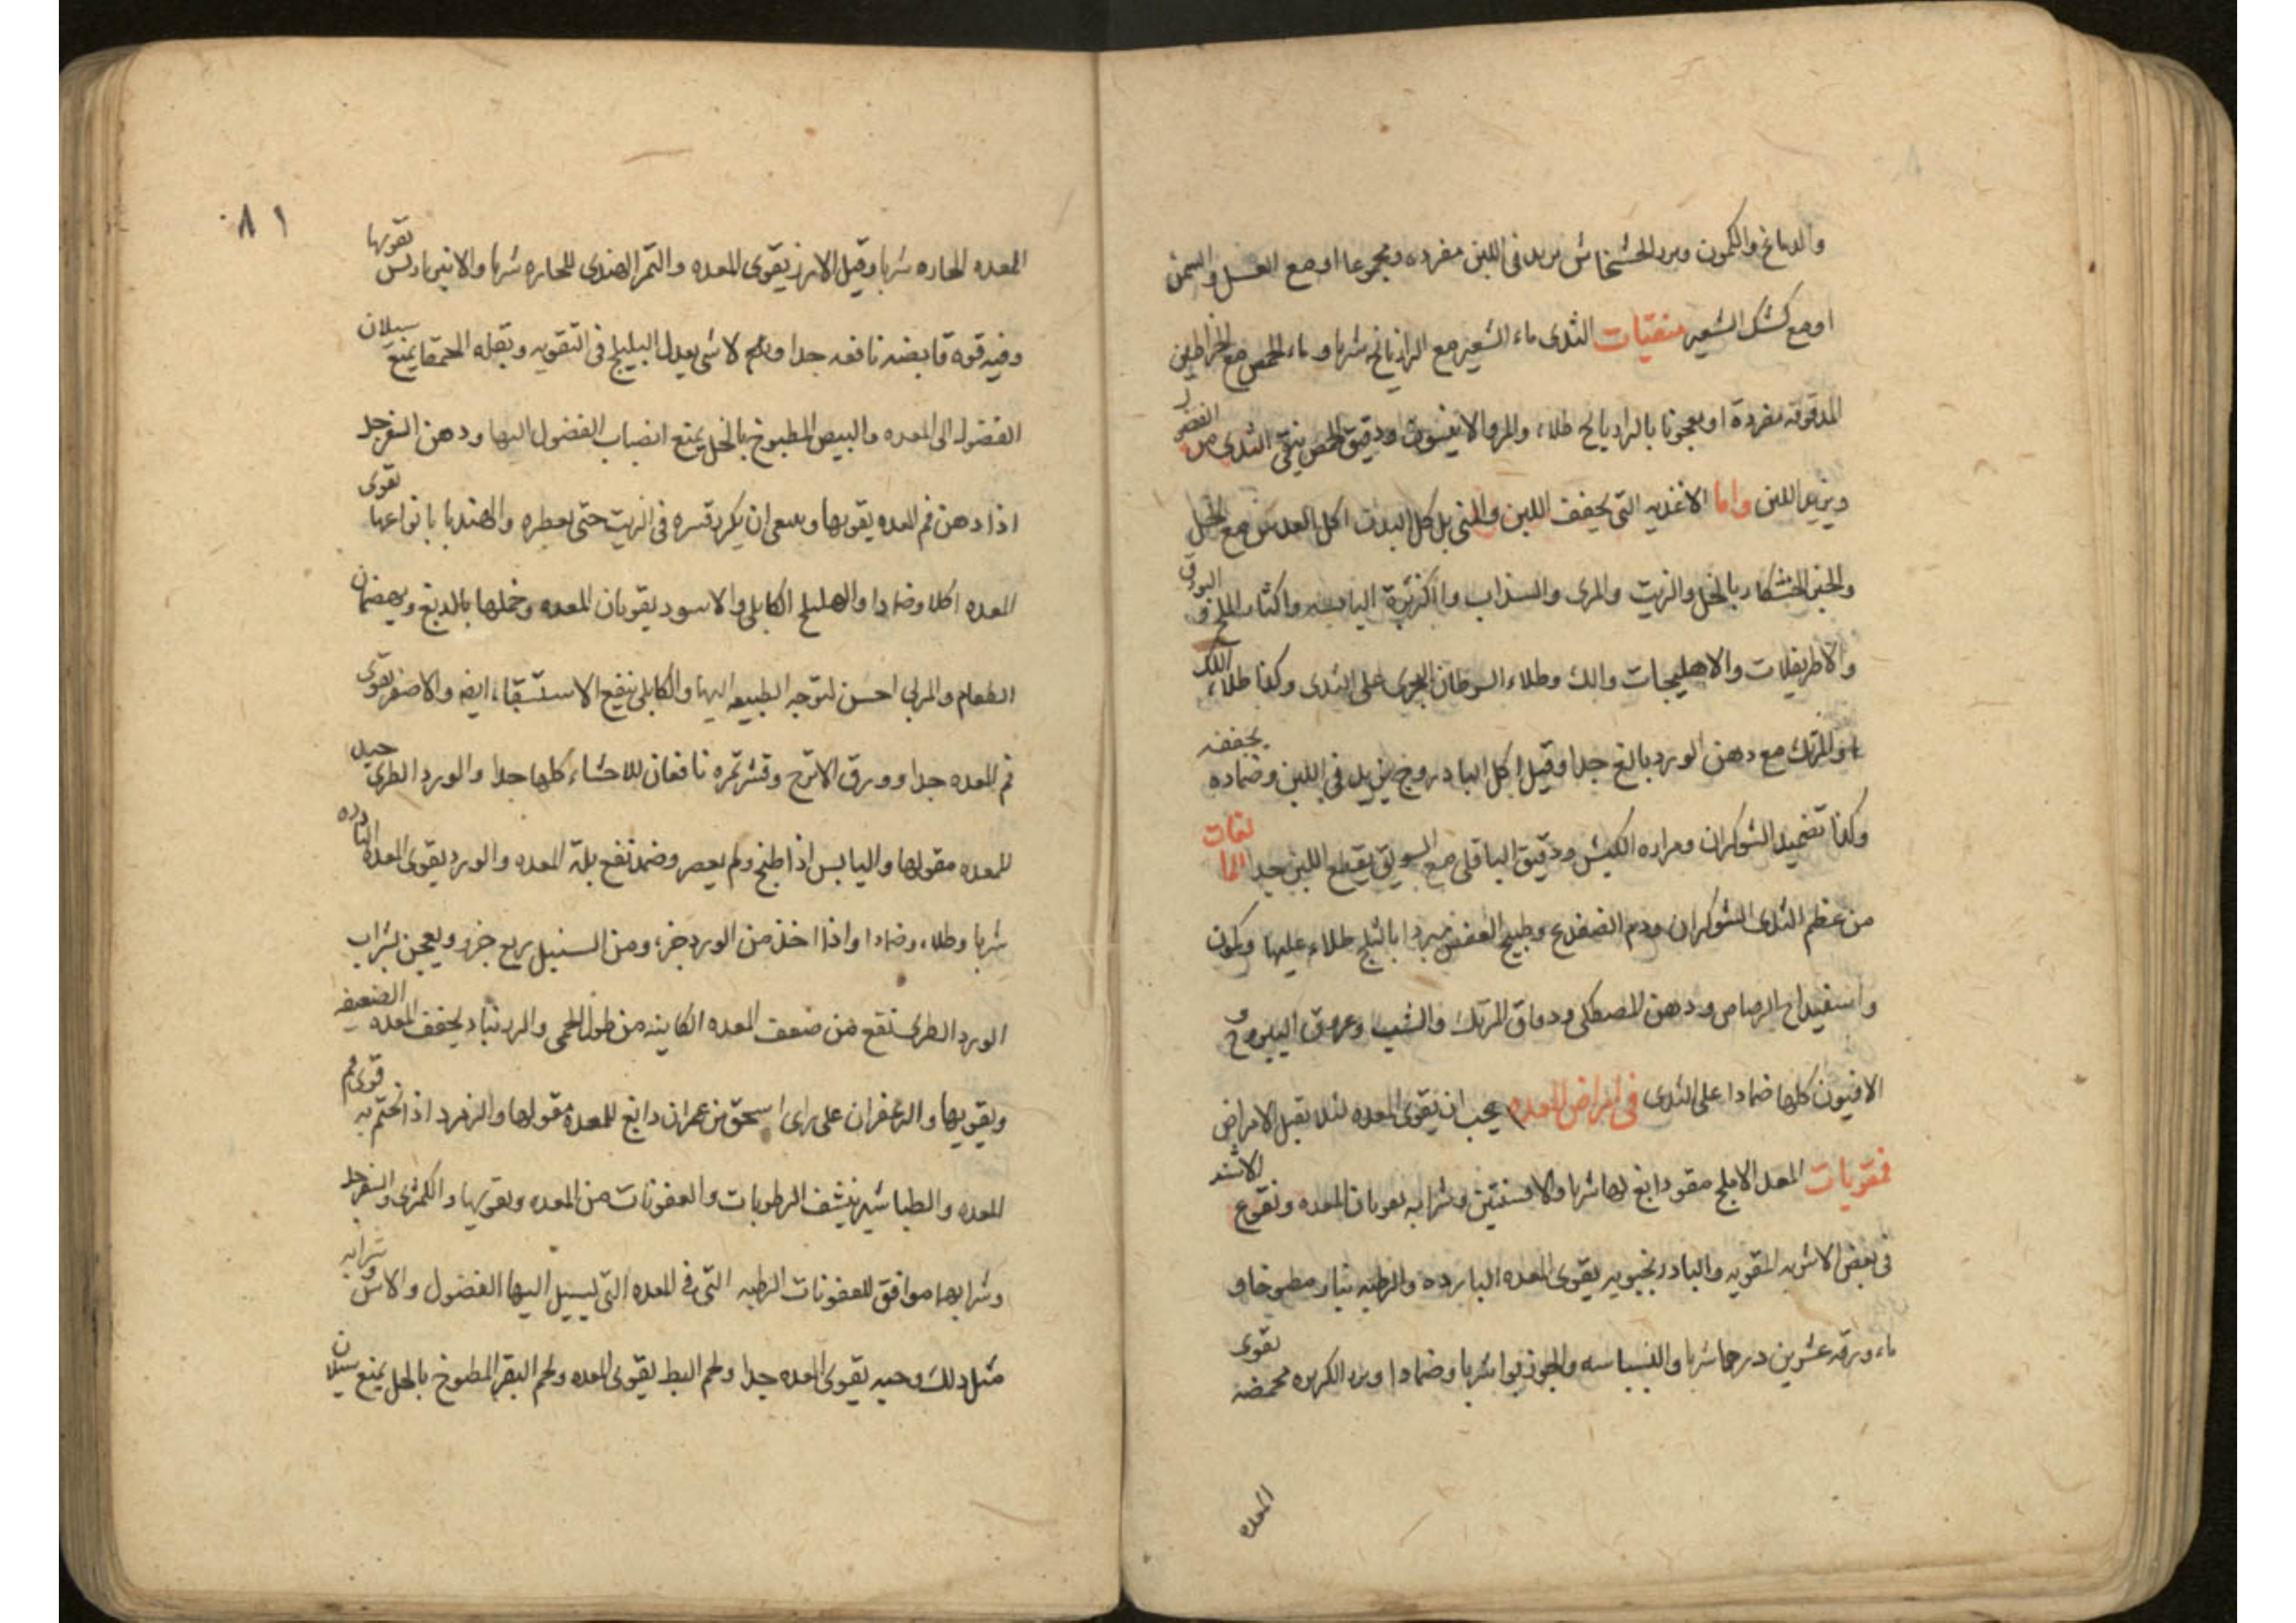 والدماغ والكمون وبزر الخشخاش يزيد في اللبن مفرده ومجموعا او مع العسل والسمن
او مع كشك الشعير منقيات الثدى ماء الشعير مع الرازيانج شربا وماء الحمص مع الخراطين
المدقوقه مفردة او معجونا بالرازيانج طلاء والمر والانيسون ودقيق الحمص ينقى الثدى من الفضول
ويزيد اللبن واما الاغذيه التى تجفف اللبن والمنى بل كل البدن اكل العدس مع الخل
والخبز الخشكار بالخل والزيت والمرى والسذاب والكزبرة اليابسه واكثار الملح و البورق
والاطريفلات والاهليجات والك وطلاء السرطان البحرى على الثدى وكذا طلاء اللك
والمرتك مع دهن الورد بالغ جدا وقيل اكل الباذروج يزيد في اللبن وضماده يجففه
وكذا تضميد الشوكران ومراره الكبش ودقيق الباقلى مع السويق يقطع اللبن جدا المانعات
من عظم الثدى الشوكران ودم الضفدع وطبيخ العفص مبردا بالثلج طلاء عليها وكمون
واسفيداج الرصاص ودهن المصطكى ودقاق المرتك والشب وعروق اليبروح و
الافيون كلها ضمادا على الثدى فى امراض المعده يجب ان تقوى المعده لئلا يقبل الامراض
فمقويات المعده الاملج مقو دابغ لها شربا والافسنتين وشرابه يقويان المعده ونقوع الاشنه
فى بعض الاشربه المقويه والبادرنجبويه يقوى المعده البارده والرطبه نيا ومطبوخا و
ماء ورقه عشرين درهما شربا والبسباسه والجوزبوا شربا وضمادا وبزر الكزبره محمضه تقوى
المعده
٨١
المعده الحاره شربا وقيل الارز يقوى المعده والتمر الهندى للحاره شربا والانبرباريس تقويها
وفيه قوه قابضه نافعه جدا و لا شى يعدل البليلج فى التقويه وبقله الحمقا يمنع سيلان
الفضول الى المعده والبيض المطبوخ بالخل يمنع انصباب الفضول اليها ودهن السفرجل
اذا دهن فم المعده يقويها وينبغى ان يكرر قشره فى الزيت حتى يعطره والهندبا بانواعها تقوى
المعده اكلا وضمادا والهليلج الكابلى والاسود يقويان المعده وخملها بالدبغ ويهضمان
الطعام والمربى احسن لتوجه الطبيعه اليها والكابلى ينفع الاستسقاء ايضا والاصفر يقوى
فم المعده جدا وورق الاترج وقشر ثمره نافعان للاحشاء كلها جدا والورد الطرى جيد
للمعده مقو لها واليابس اذا طبخ ولم يعصر وضمد نفع بلة المعده والورد يقوى المعده البارده
شربا وطلاء وضمادا واذا اخذ من الورد جزء ومن السنبل ربع جزو ويعجن بشراب
الورد الطرى ينفع من ضعف المعده الكاينه من طول الحمى والزرنباد يجفف المعده الضعيفه
ويقويها والزعفران على راى اسحق بن عمران دابغ للمعدة مقو لها والزمرد اذا تختم به قوى فم
المعده والطباشير ينشف الرطوبات والعفونات من المعده ويقويها والكمثرى والسفرجل
وشرابهما موافق للعفونات الرطبه التى فى المعده التى يسيل اليها الفضول والاس وشرابه
مثل ذلك وحبه يقوى المعده جدا ولحم البط يقوى المعده ولحم البقر المطبوخ بالخل يمنع سيلان